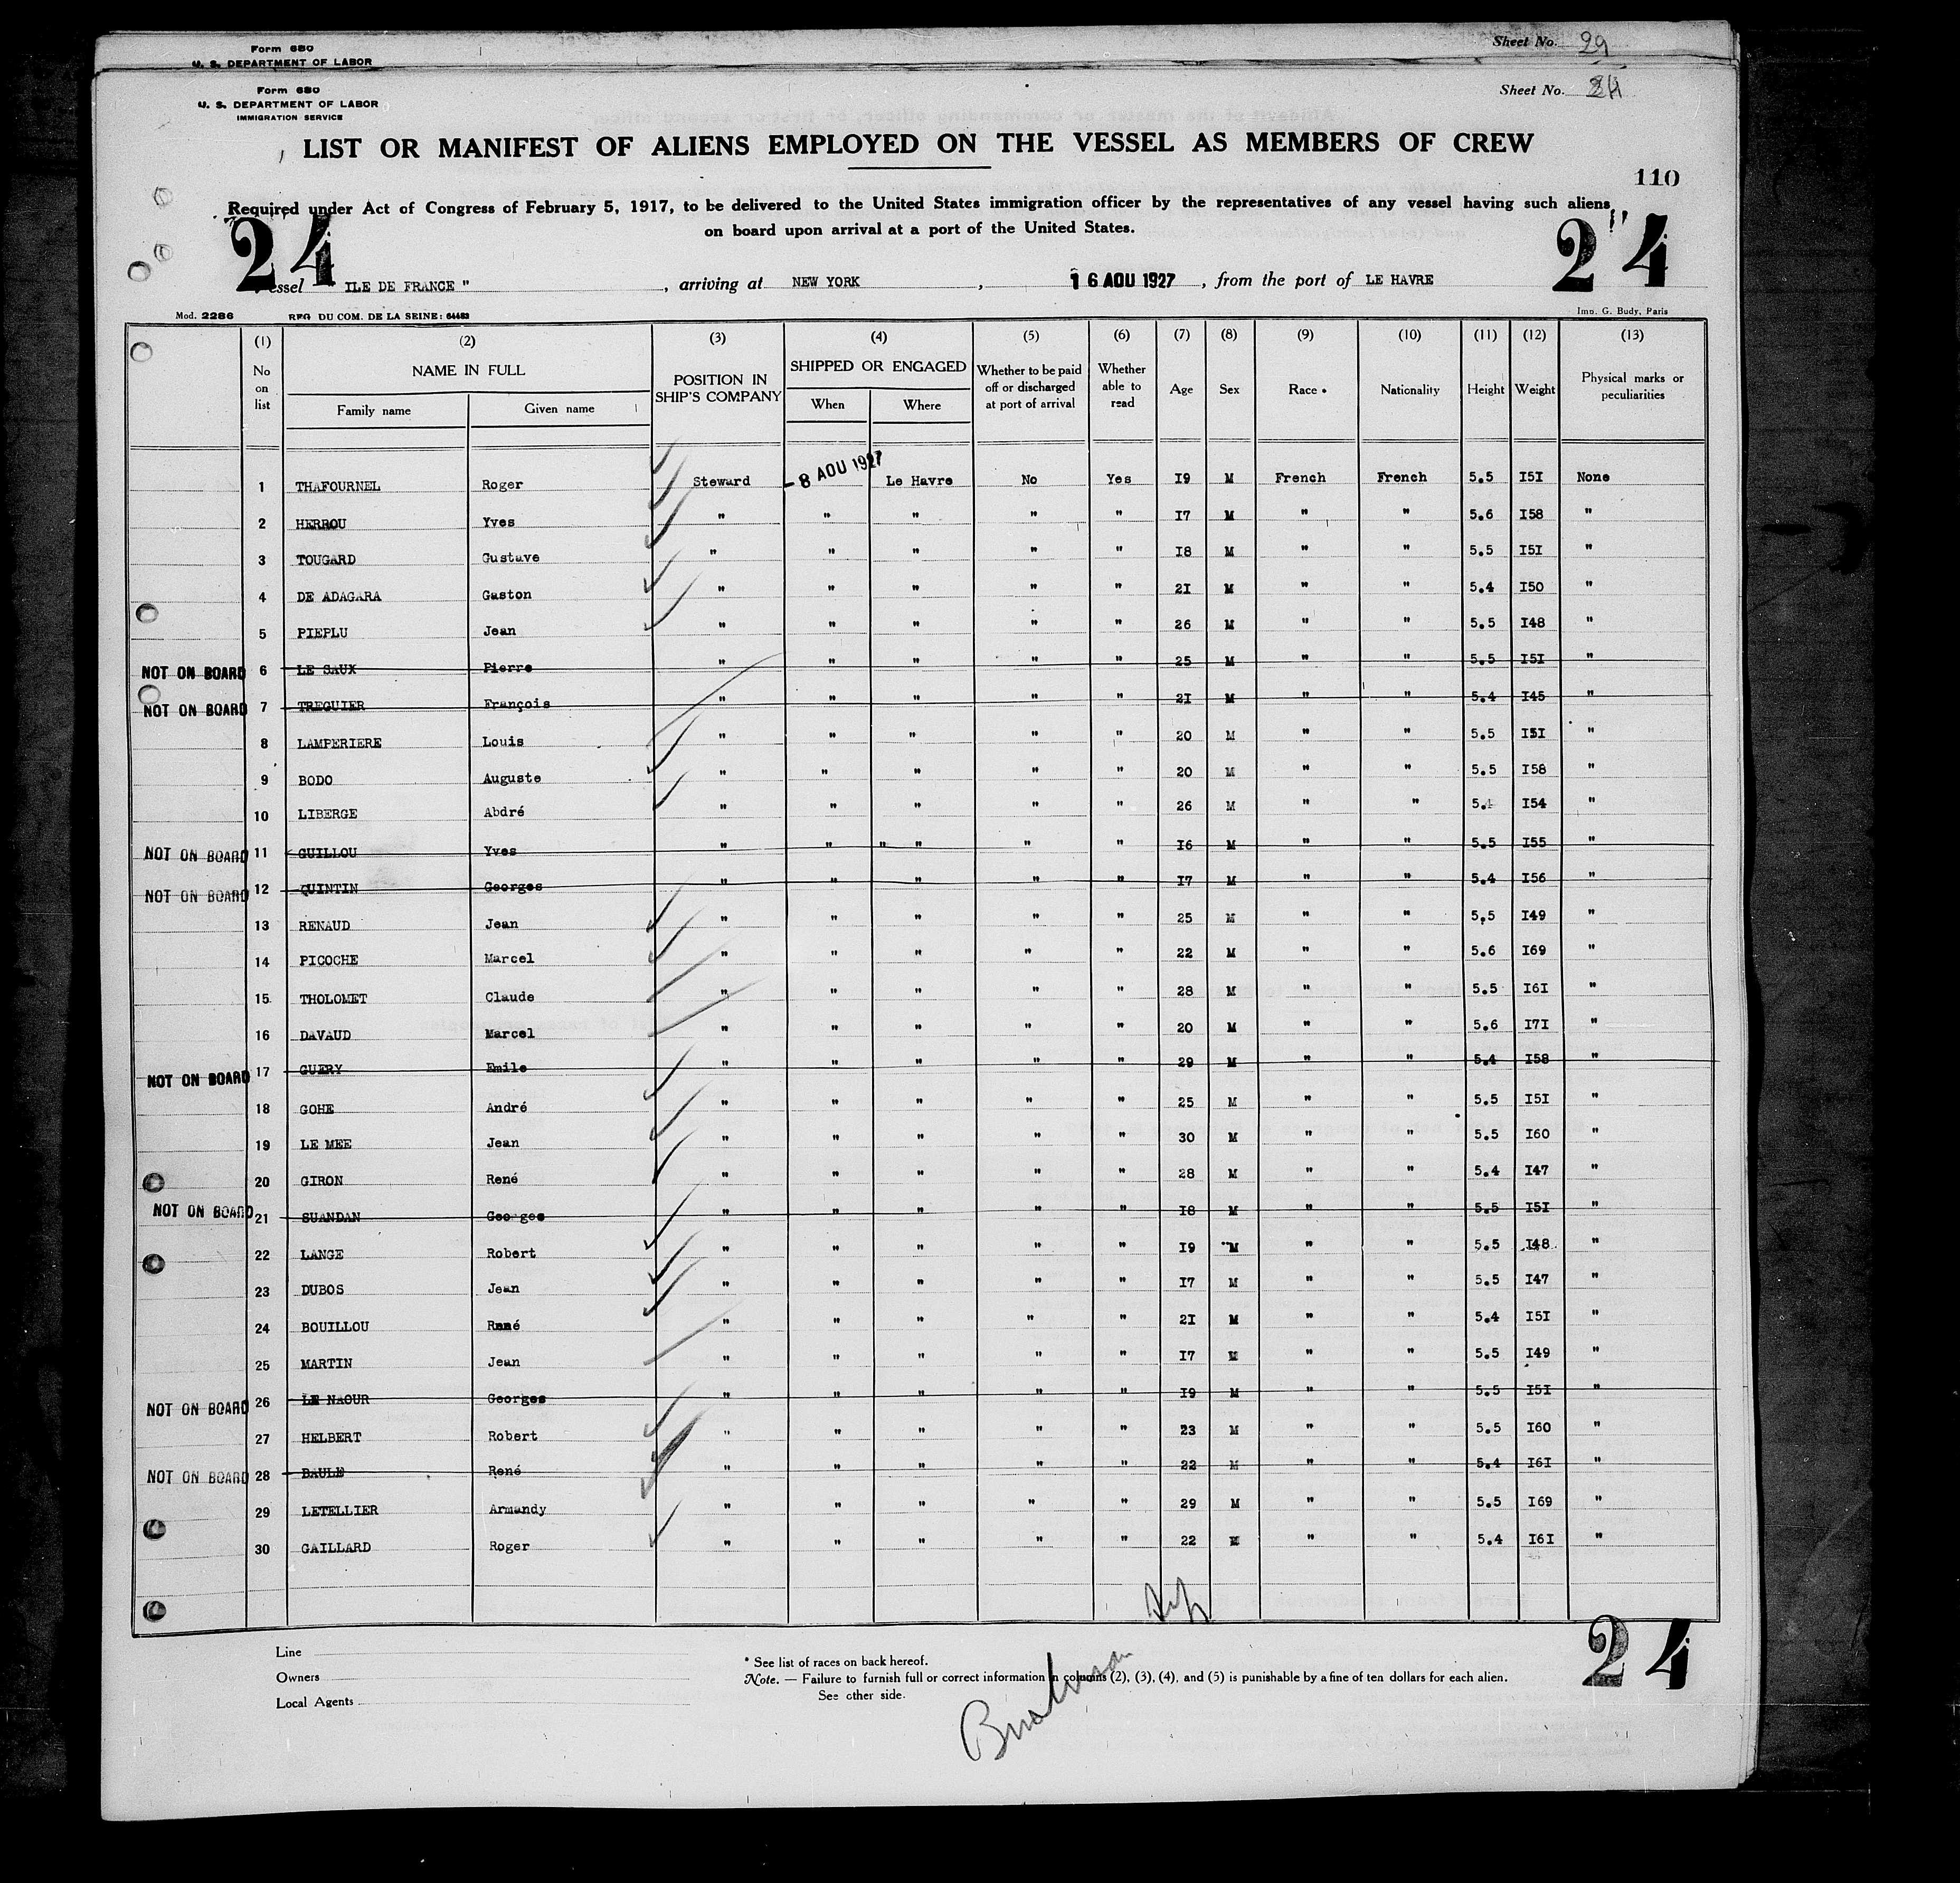 Form 680
U. S. DEPARTMENT OF LABOR
Sheet No. 29
Form 680
U. S. DEPARTMENT OF LABOR
IMMIGRATION SERVICE
Sheet No.
LIST OR MANIFEST OF ALIENS EMPLOYED ON THE VESSEL AS MEMBERS OF CREW
110
Required under Act of Congress of February 5, 1917, to be delivered to the United States immigration officer by the representatives of any vessel having such aliens
on board upon arrival at a port of the United States.
24 24
Vessel ILE DE FRANCE " , arriving at NEW YORK , 16 AOU 1927 , from the port of LE HAVRE
Mod. 2286 REG. DU COM. DE LA SEINE: 64483 Imp. G. Budy, Paris
(1) (2) (3) (4) (5) (6) (7) (8) (9) (10) (11) (12) (13)
No on list NAME IN FULL Family name Given name POSITION IN SHIP'S COMPANY SHIPPED OR ENGAGED When Where Whether to be paid off or discharged at port of arrival Whether able to read Age Sex Race * Nationality Height Weight Physical marks or peculiarities
1 THAFOURNEL Roger Steward -8 AOU 1927 Le Havre No Yes I9 M French French 5.5 I5I None
2 HERROU Yves " " " " " I7 M " " 5.6 I58 "
3 TOUGARD Gustave " " " " " I8 M " " 5.5 I5I "
4 DE ADAGARA Gaston " " " " " 2I M " " 5.4 I50 "
5 PIEPLU Jean " " " " " 26 M " " 5.5 I48 "
NOT ON BOARD 6 LE SAUX Pierre " " " " " 25 M " " 5.5 I5I "
NOT ON BOARD 7 TREGUIER François " " " " " 2I M " " 5.4 I45 "
8 LAMPERIERE Louis " " " " " 20 M " " 5.5 I5I "
9 BODO Auguste " " " " " 20 M " " 5.5 I58 "
10 LIBERGE Abdré " " " " " 26 M " " 5.4 I54 "
NOT ON BOARD 11 GUILLOU Yves " " " " " " I6 M " " 5.5 I55 "
NOT ON BOARD 12 QUINTIN Georges " " " " " I7 M " " 5.4 I56 "
13 RENAUD Jean " " " " " 25 M " " 5.5 I49 "
14 PICOCHE Marcel " " " " " 22 M " " 5.6 I69 "
15 THOLOMET Claude " " " " " 28 M " " 5.5 I6I "
16 DAVAUD Marcel " " " " " 20 M " " 5.6 I7I "
NOT ON BOARD 17 GUERY Emile " " " " " 29 M " " 5.4 I58 "
18 GOHE André " " " " " 25 M " " 5.5 I5I "
19 LE MEE Jean " " " " " 30 M " " 5.5 I60 "
20 GIRON René " " " " " 28 M " " 5.4 I47 "
NOT ON BOARD 21 SUANDAN Georges " " " " " I8 M " " 5.5 I5I "
22 LANGE Robert " " " " " I9 M " " 5.5 I48 "
23 DUBOS Jean " " " " " I7 M " " 5.5 I47 "
24 BOUILLOU René " " " " " 2I M " " 5.4 I5I "
25 MARTIN Jean " " " " " I7 M " " 5.5 I49 "
NOT ON BOARD 26 LE NAOUR Georges " " " " " I9 M " " 5.5 I5I "
27 HELBERT Robert " " " " " 23 M " " 5.5 I60 "
NOT ON BOARD 28 BAULE René " " " " " 22 M " " 5.4 I6I "
29 LETELLIER Armandy " " " " " 29 M " " 5.5 I69 "
30 GAILLARD Roger " " " " " 22 M " " 5.4 I6I "
24
Line
Owners
Local Agents
* See list of races on back hereof.
Note. — Failure to furnish full or correct information in columns (2), (3), (4), and (5) is punishable by a fine of ten dollars for each alien.
See other side.